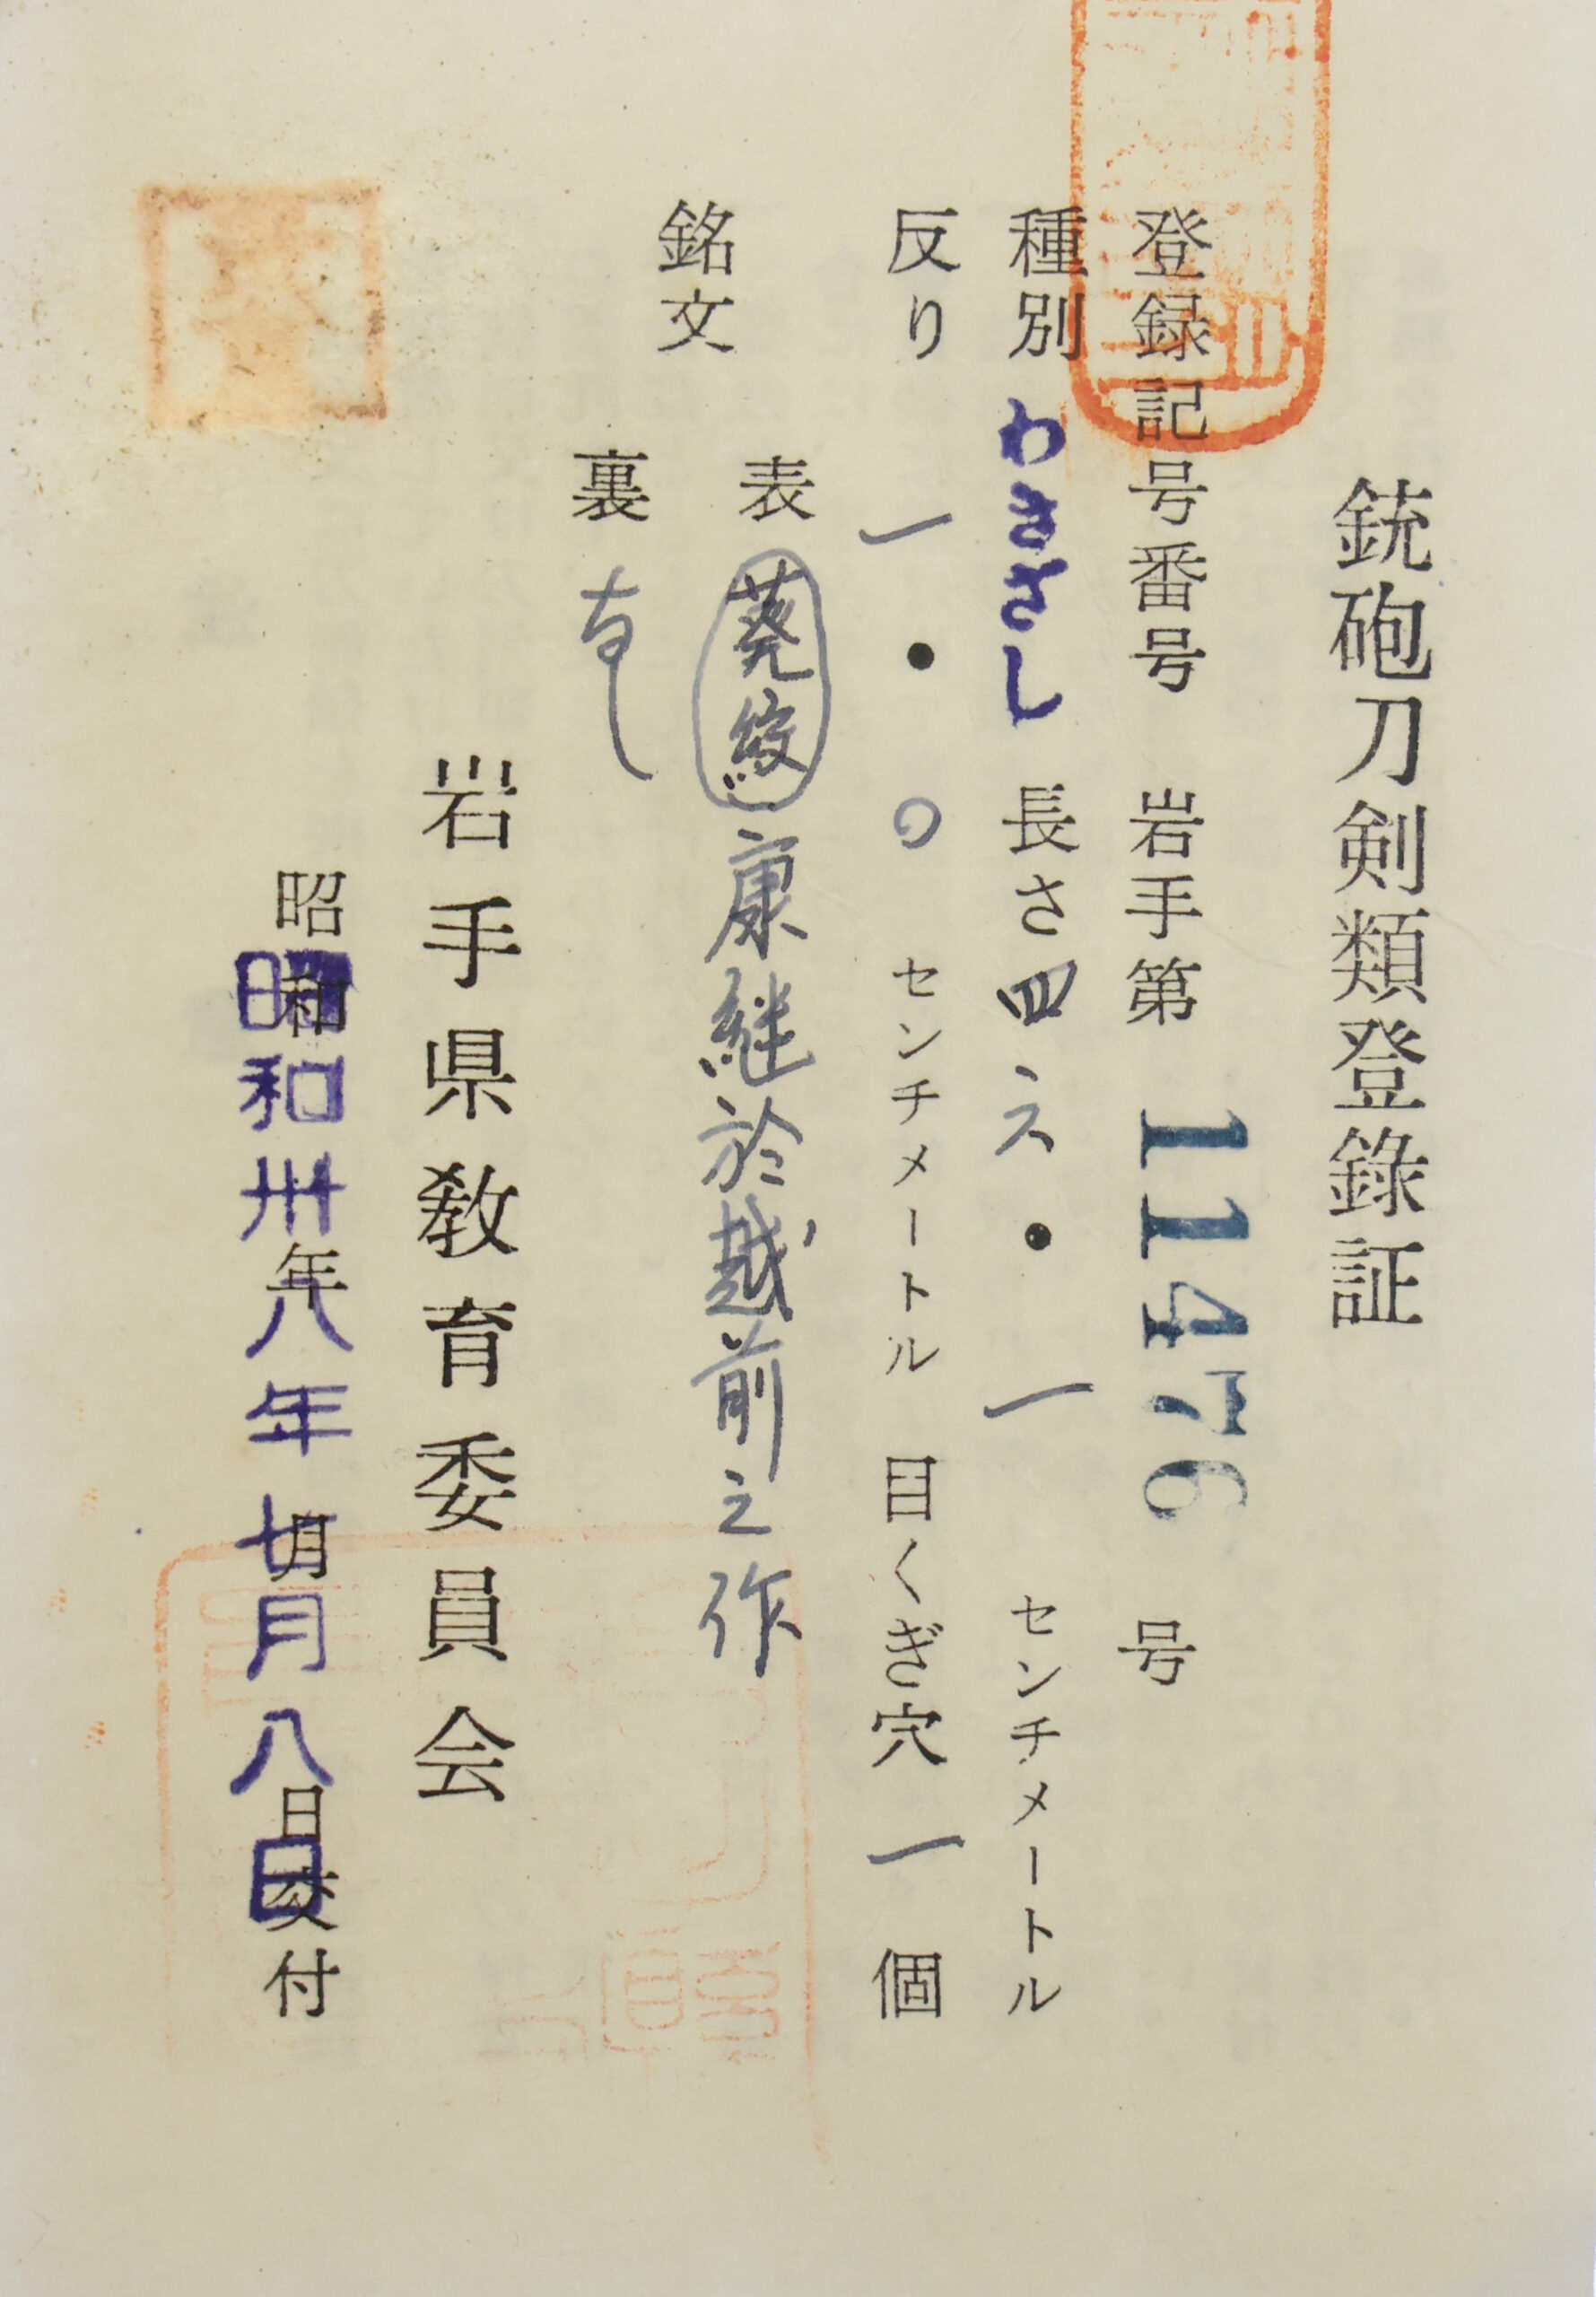 銃砲刀剣類登錄証
登録記号番号 岩手第 11476 号
種別 わきざし 長さ 四六・一 センチメートル
反り 一・〇 センチメートル 目くぎ穴 一 個
銘文
表 葵紋 康継於越前之作
裏 なし
岩手県教育委員会
昭和 年 月 日交付
昭和卅八年七月八日